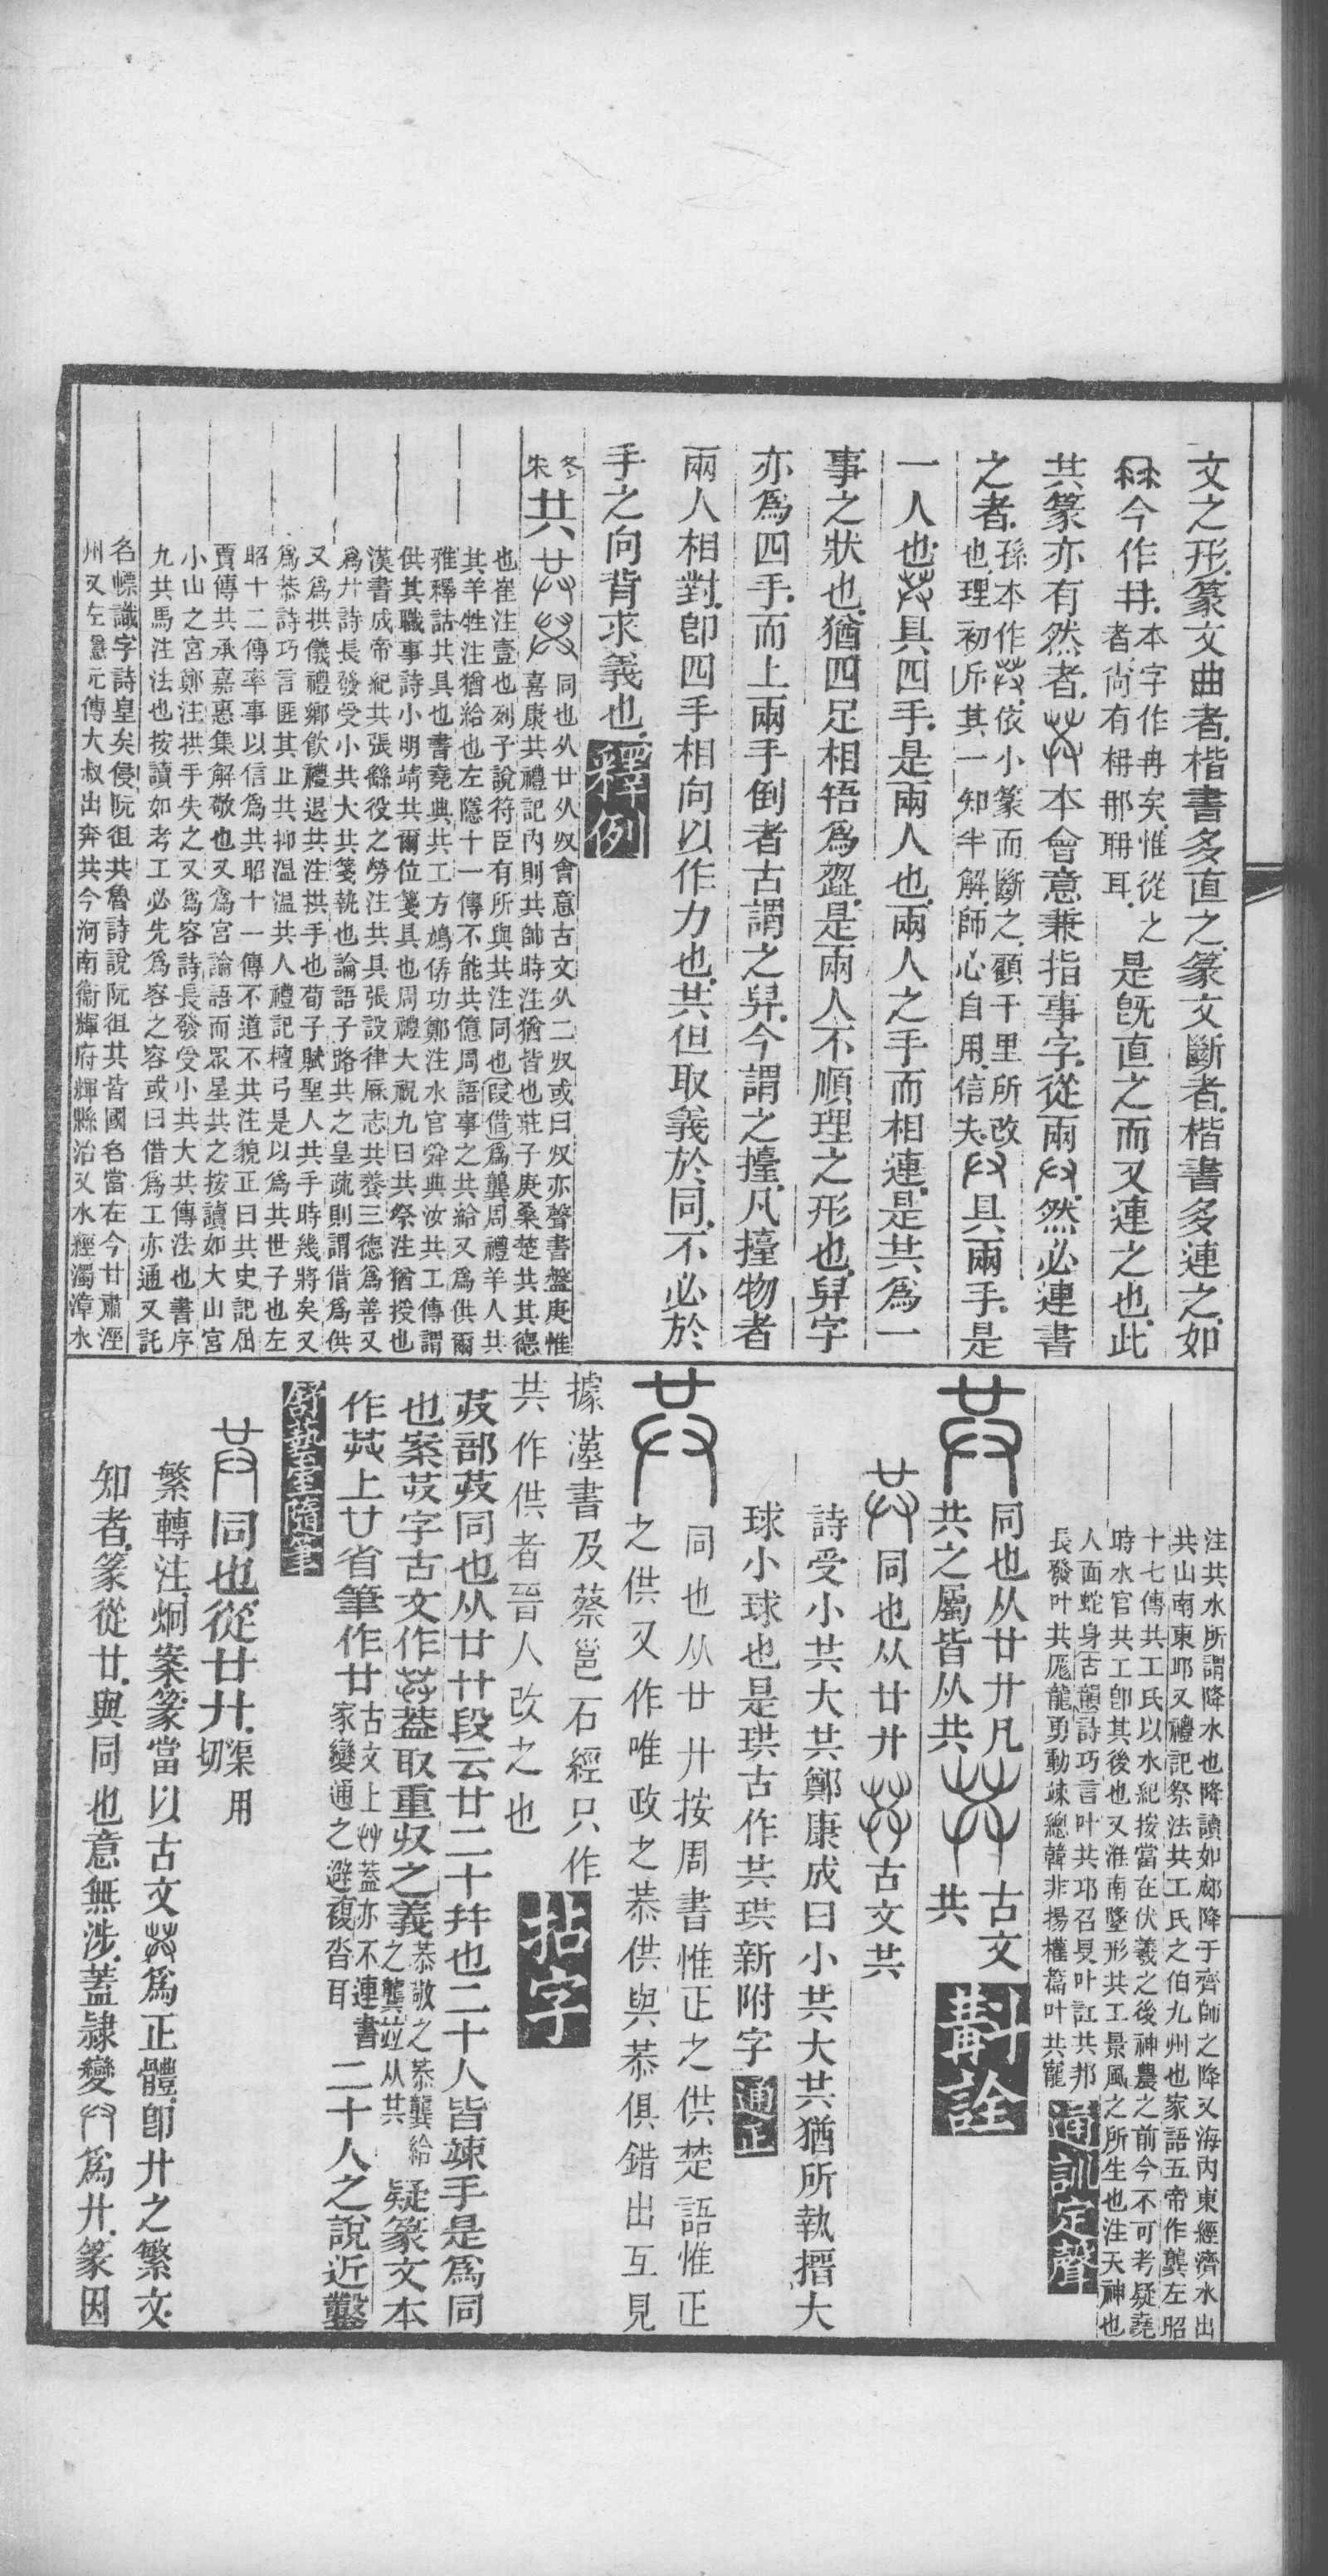 文之形篆文曲者楷書多直之篆文斷者楷書多連之如
今作冄本字作冉矣惟從之者尚有枏那聃耳是既直之而又連之也此
共篆亦有然者本會意兼指事字從兩然必連書
之者孫本作依小篆而斷之顧千里所改也理初斥其一知半解師心自用信夫具兩手是
一人也具四手是兩人也兩人之手而相連是共爲一
事之狀也猶四足相㸦爲歰是兩人不順理之形也舁字
亦爲四手而上兩手倒者古謂之舁今謂之擡凡擡物者
兩人相對卽四手相向以作力也共但取義於同不必於
手之向背求義也釋例
朱冬共
同也从廿从𠬞會意古文从二𠬞或曰𠬞亦聲書盤庚惟
喜康共禮記內則共帥時注猶皆也莊子庚桑楚共其德
也崔注壹也列子說符臣有所與共注同也叚借爲龔周禮羊人共
其羊牲注猶給也左隱十一傳不能共億周語事之共給又爲供爾
雅釋詁共具也書堯典共工方鳩僝功鄭注水官舜典汝共工傳謂
供其職事詩小明靖共爾位箋具也周禮大祝九曰共祭注猶授也
漢書成帝紀共張繇役之勞注共具張設律厤志共養三德爲善又
爲廾詩長發受小共大共箋執也論語子路共之皇疏則謂借爲供
又爲拱儀禮鄉飲禮退共注拱手也荀子賦聖人共手時幾將矣又
爲恭詩巧言匪其止共抑溫溫共人禮記檀弓是以爲共世子也左
昭十二傳率事以信爲共昭十一傳不道不共注貌正曰共史記屈
賈傳共承嘉惠集解敬也又爲宮論語而眾星共之按讀如大山宮
小山之宮鄭注拱手失之又爲容詩長發受小共大共傳法也書序
九共馬注法也按讀如考工必先爲容之容或曰借爲工亦通又託
名幖識字詩皇矣侵阮徂共魯詩說阮徂共皆國名當在今甘肅涇
州又左隱元傳大叔出奔共今河南衞輝府輝縣治又水經濁漳水
注共水所謂降水也降讀如郕降于齊師之降又海內東經濟水出
共山南東邱又禮記祭法共工氏之伯九州也家語五帝作龔左昭
十七傳共工氏以水紀按當在伏羲之後神農之前今不可考疑堯
時水官共工卽其後也又淮南墬形共工景風之所生也注天神也
人面蛇身古韻詩巧言叶共邛召旻叶訌共邦
長發叶共厖龍勇動竦總韓非揚權篇叶共寵通訓定聲
同也从廿廾凡共之屬皆从共古文共斠詮
同也从廿廾古文共
詩受小共大共鄭康成曰小共大共猶所執搢大
球小球也是珙古作共珙新附字通正
同也从廿廾按周書惟正之供楚語惟正
之供又作唯政之恭供與恭俱錯出互見
據漢書及蔡邕石經只作
共作供者晉人改之也拈字
茇部茇同也从廿廾段云廿二十幷也二十人皆竦手是爲同
也案茇字古文作蓋取重𠬞之義恭敬之恭龔給之龔竝从共疑篆文本
作上廿省筆作廿古文上艸蓋亦不連書家變通之避複沓耳二十人之說近鑿
舒藝室隨筆
同也從廿廾渠用切
繁轉注炯案篆當以古文爲正體卽廾之繁文
知者篆從廿與同也意無涉蓋隷變爲廾篆因